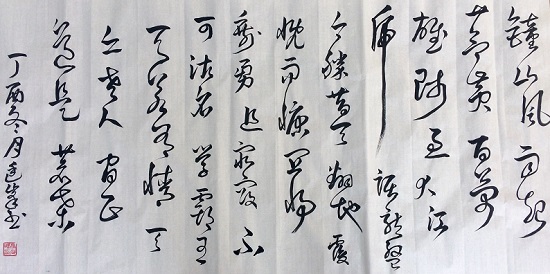 鐘山風雨起
蒼黃百萬
雄師過大江
虎踞龍盤
今勝昔天翻地覆
慨而慷宜將
剩勇追窮寇不
可沽名學霸王
天若有情天
亦老人間正
道是滄桑
丁酉冬月书